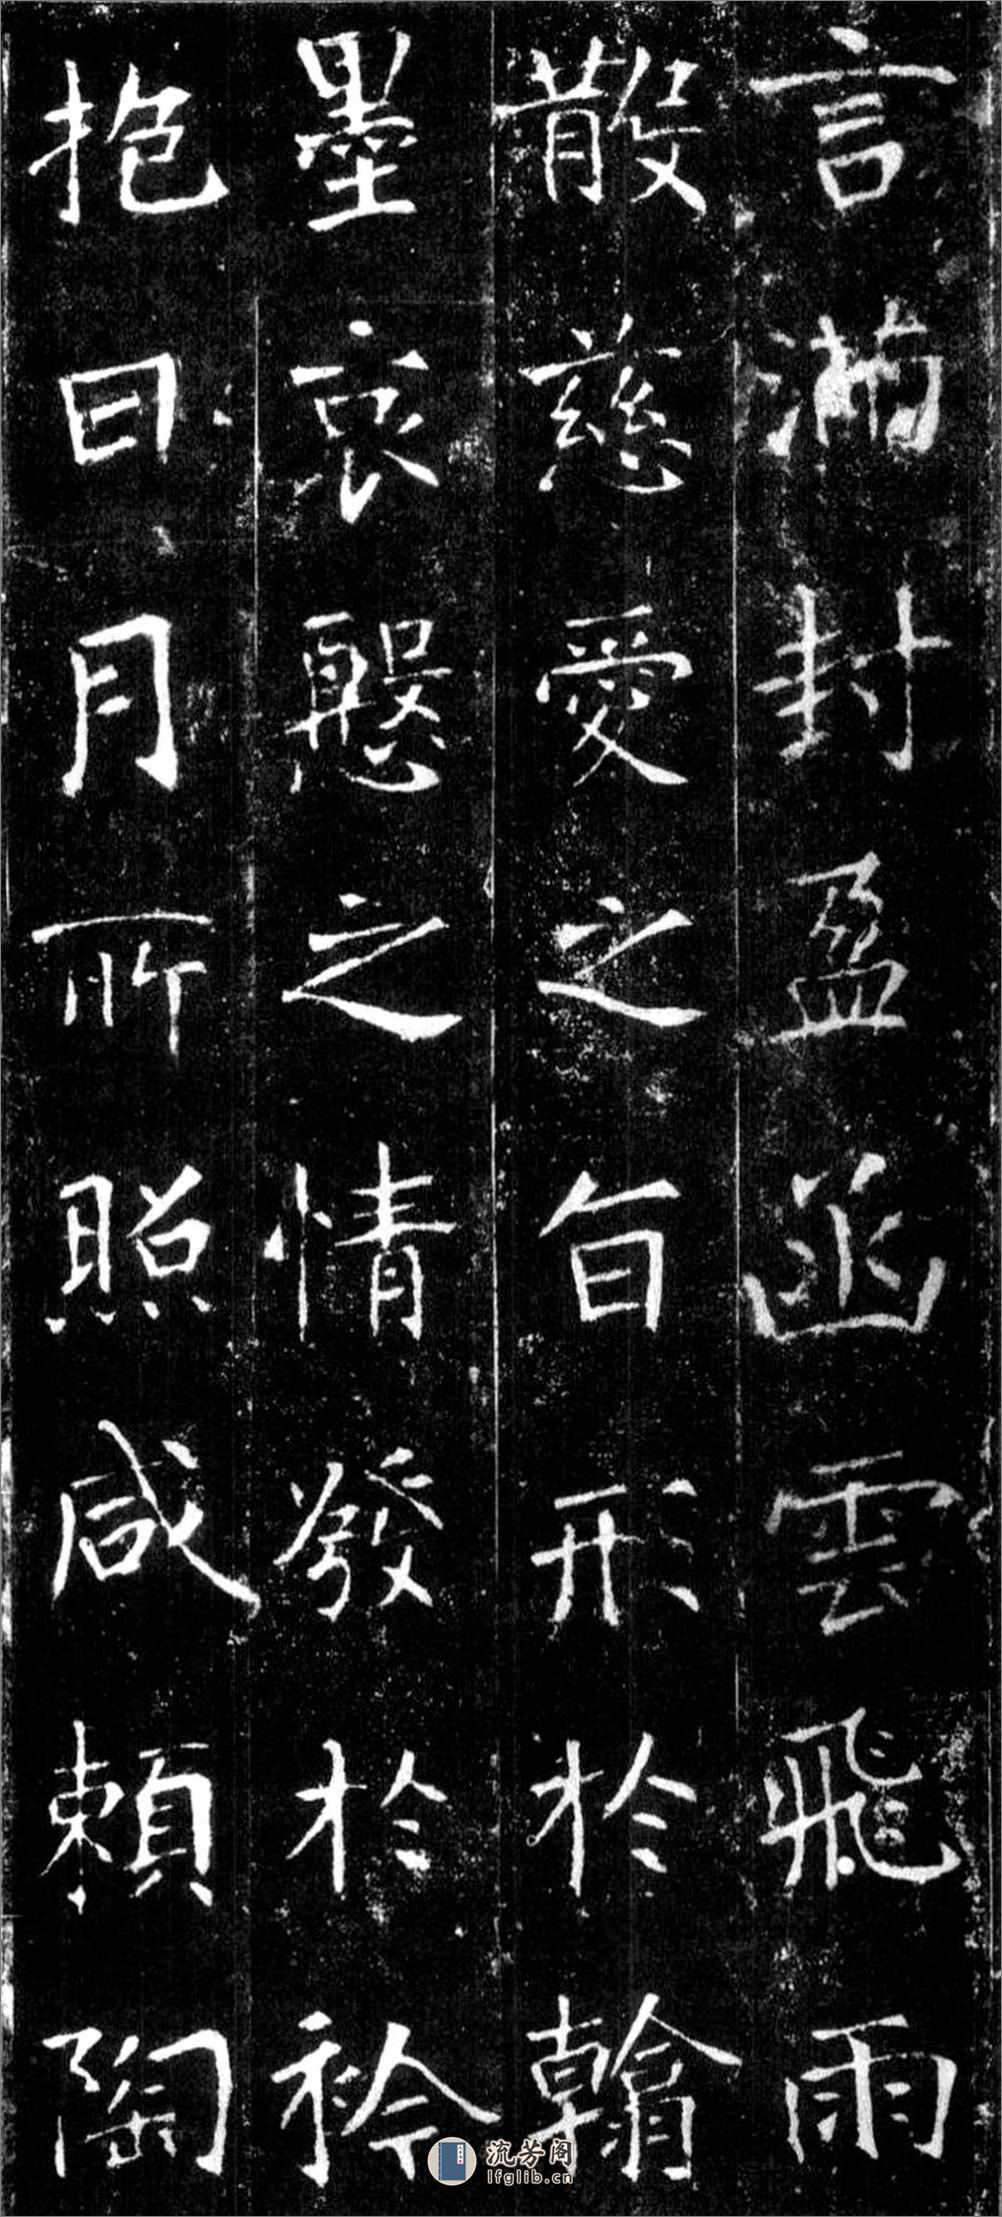 言滿封盈函雲飛雨
散慈愛之旨形於翰
墨哀慇之情發於衿
抱日月所照咸賴陶
流芳阁
lfglib.cn